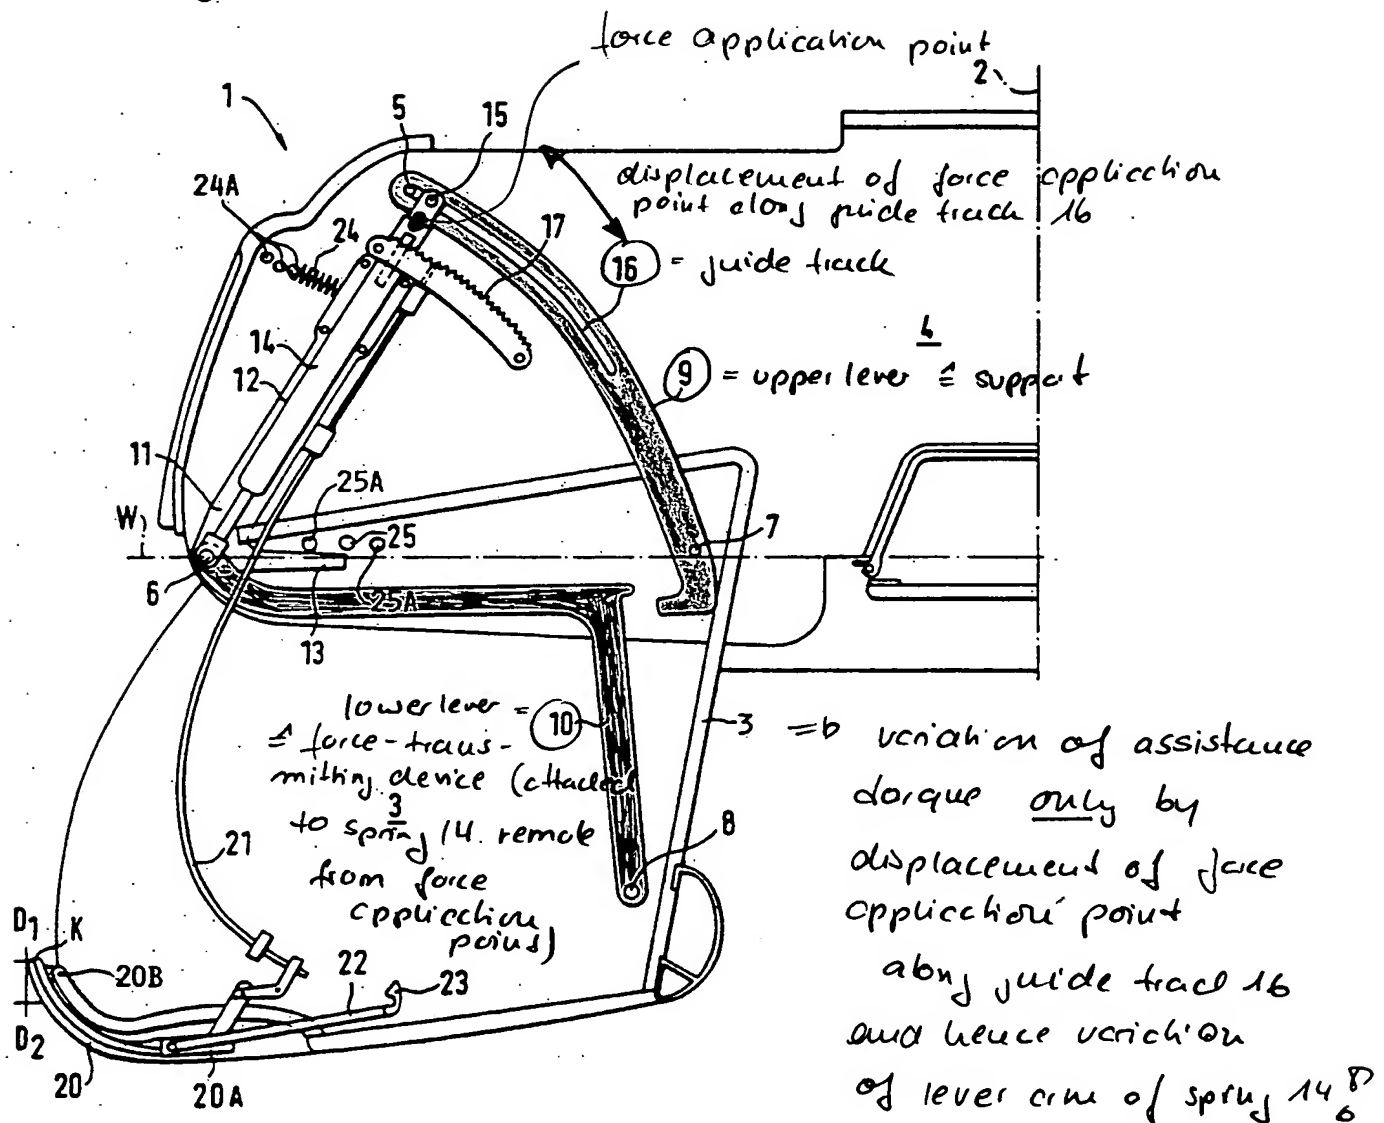 force application point
2
1
5
15
displacement of force application
point along guide track 16
24A
24
17
16 = guide track
4
9 = upper lever ≙ support
14
12
11
25A
W
25
7
6
25A
13
lower lever = 10
≙ force-trans-
mitting device (attached
3
to spring 14 remote
from force
application
point)
3
=> variation of assistance
torque only by
displacement of force
application point
along guide track 16
and hence variation
of lever arm of spring 14
8
21
D1
K
20B
22
23
D2
20
20A